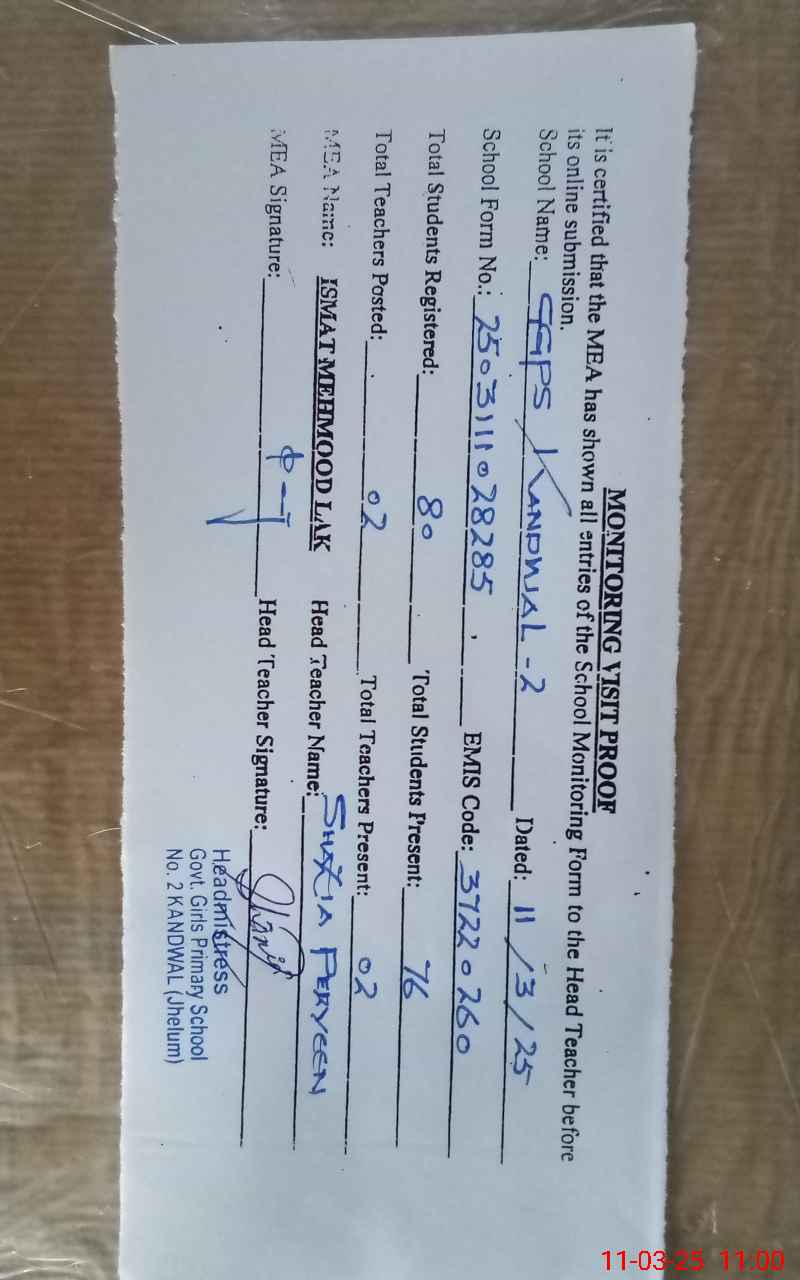 MONITORING VISIT PROOF
It is certified that the MEA has shown all entries of the School Monitoring Form to the Head Teacher before
its online submission.
School Name: GGPS KANDWAL-2 Dated: 11/3/25
School Form No.: 25031111028285, EMIS Code: 37220260
Total Students Registered: 80 Total Students Present: 76
Total Teachers Posted: 02 Total Teachers Present: 02
MEA Name: ISMAT MEHMOOD LAK Head Teacher Name: SHAZIA PERVEEN
MEA Signature: Head Teacher Signature:
Headmistress
Govt. Girls Primary School
No. 2 KANDWAL (Jhelum)
11-03-25 11:00